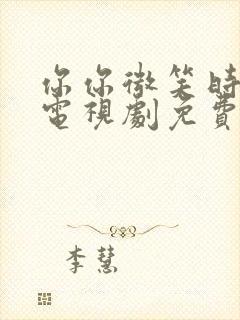 你你微笑時
電視劇免費
李慧